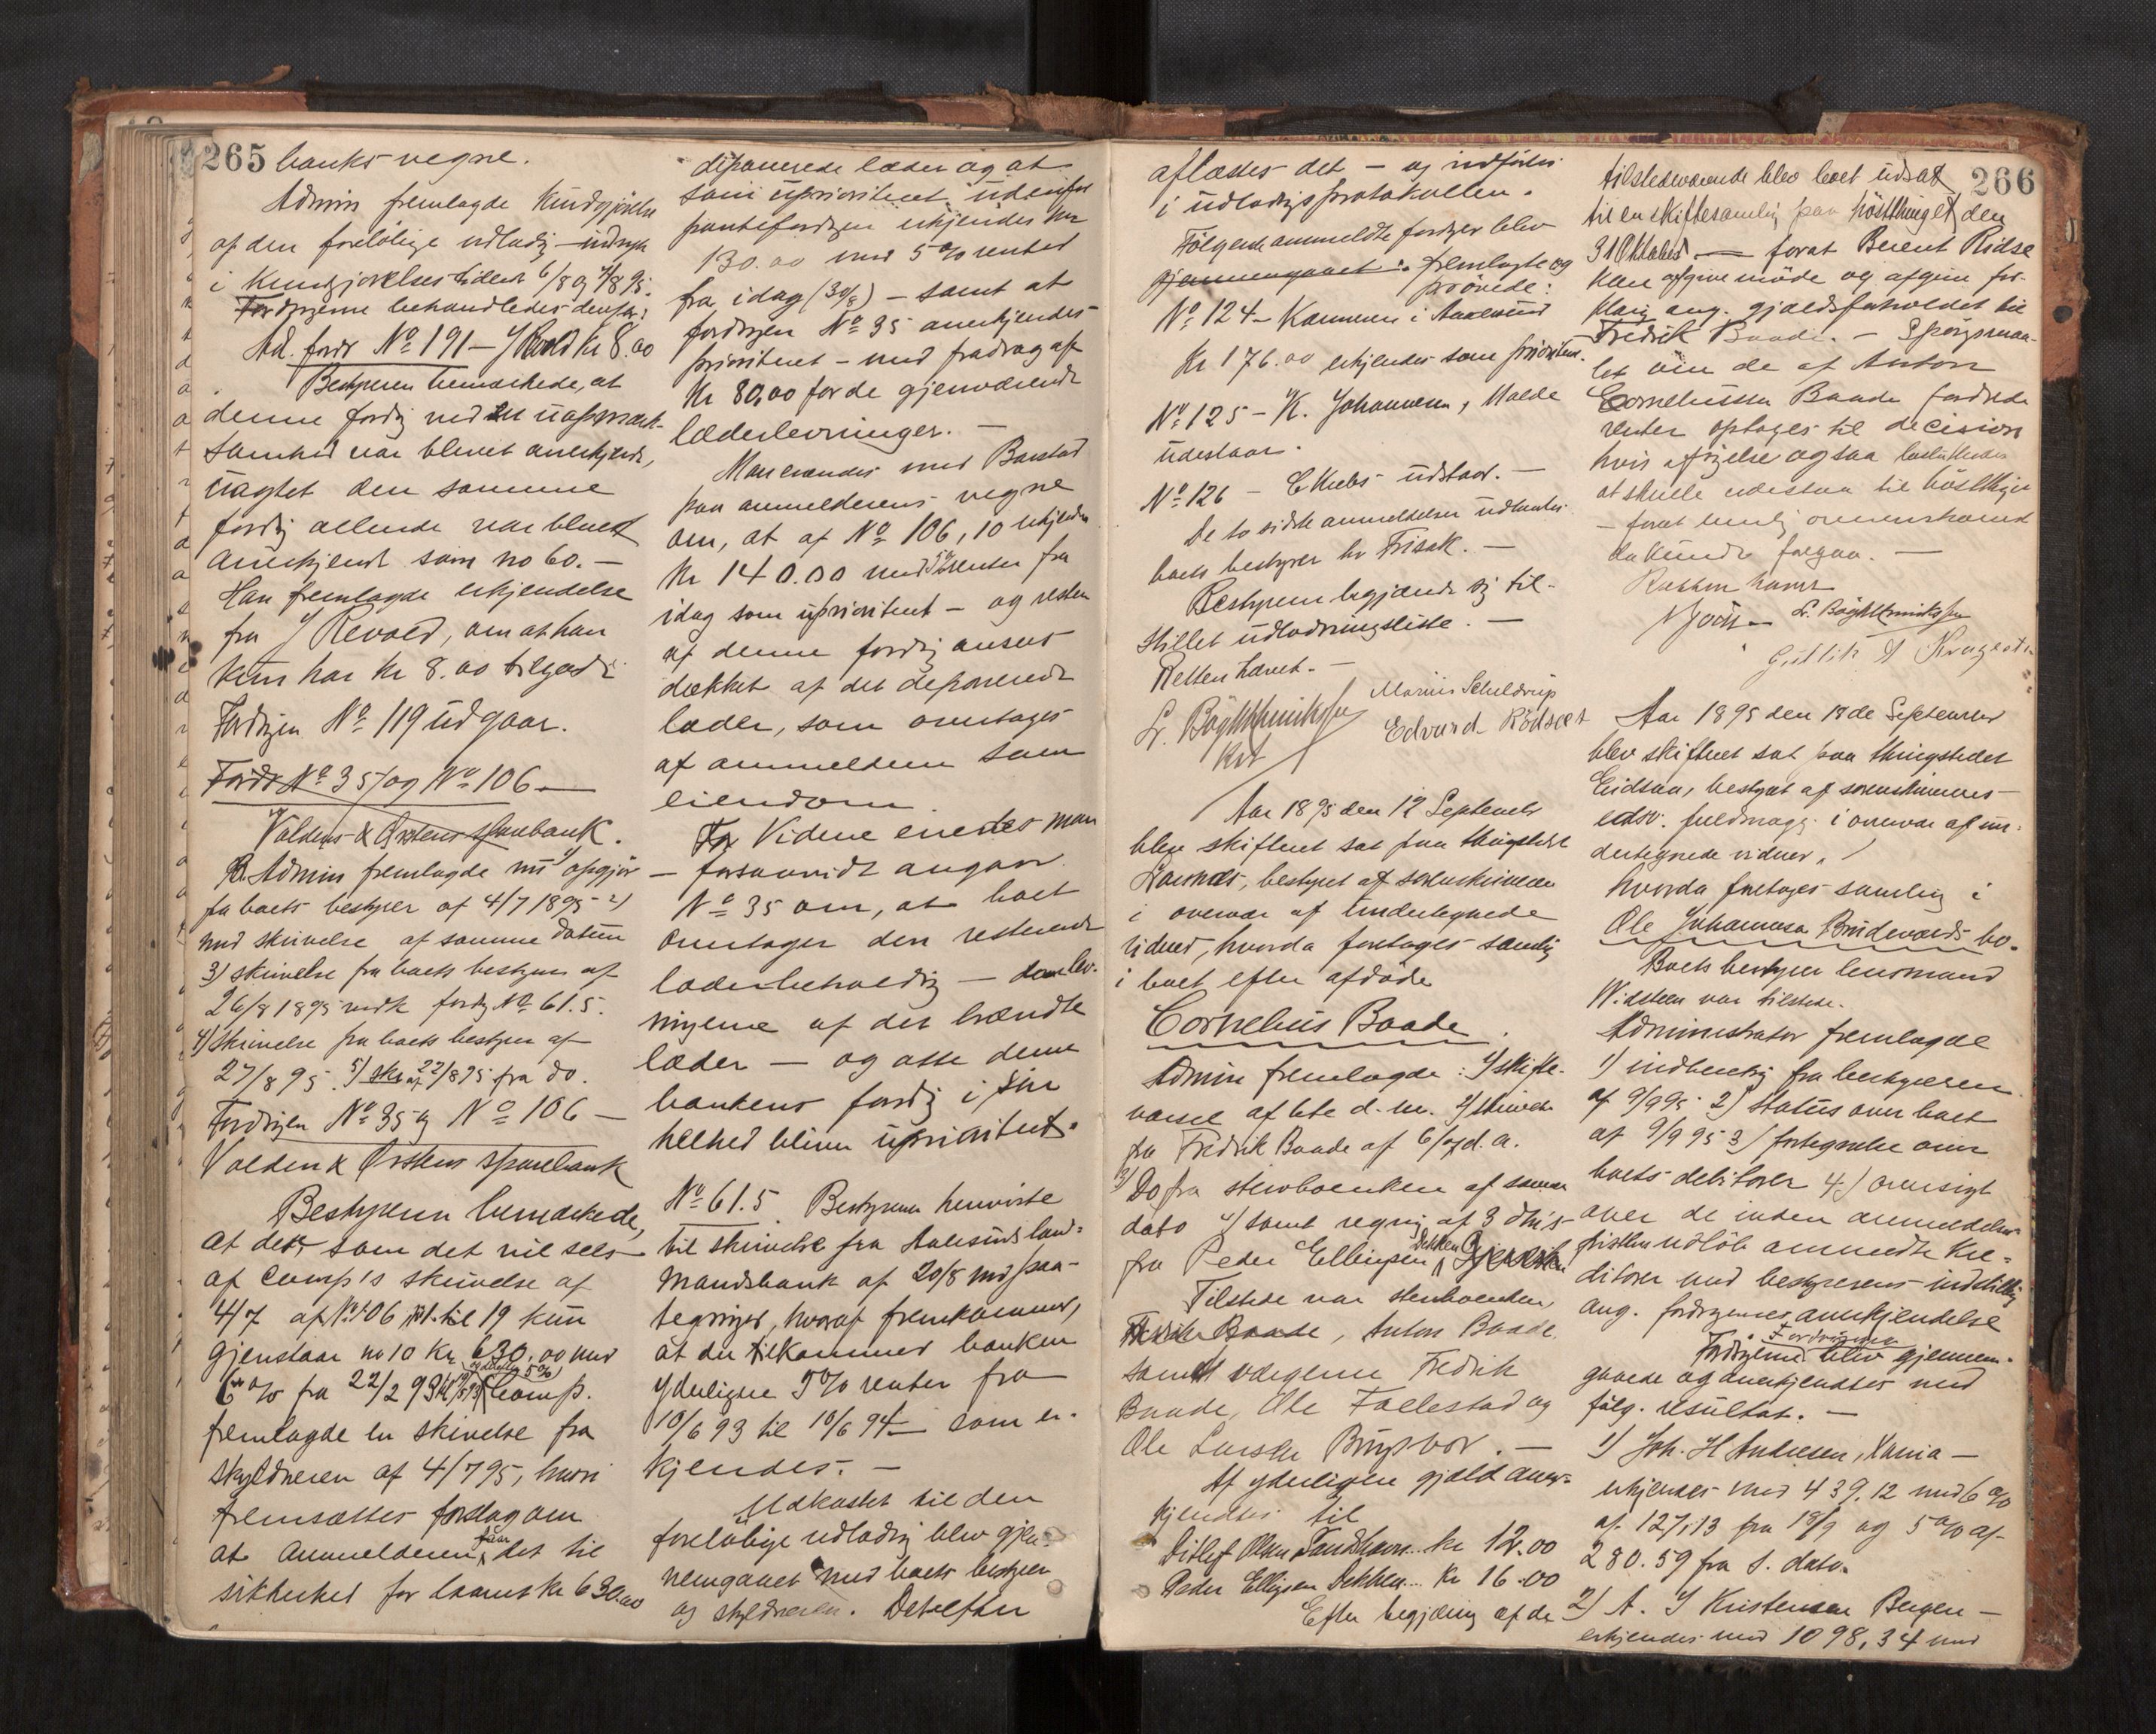 265
banks vegne.
Admin fremlagde Kundgjörelse
af den foreløbige udlodg – indryk
i Kundgjörelsestidende 6/8 og 8/8 95.
Fordrgerne behandledes derefter:
Ad. fordr No 191 – J Revold Kr 8.00
Bestyreren bemærkede, at
denne fordrg ved en uopmærk-
somhed var blevet anerkjendt,
uagtet den samme
fordrg allerede var blevet
anerkjendt som no 60. –
Han fremlagde erkjendelse
fra J Revold, om at han
kun har kr 8.00 tilgode.
Fordrgen No 119 udgaar.
Fordr No 35 og No 106 –
Voldens & Ørstens sparebank.
Admin fremlagde 1) opgjör
fra boets bestyrer af 4/7 1895 2)
med skrivelse af samme datum
3) skrivelse fra boets bestyrer af
26/8 1895 vedk fordrg No 61.5.
4) Skrivelse fra boets bestyrer af
27/8 95. 5) skr af 22/8 95 fra do.
Fordrgen No 35 og No 106 –
Volden & Ørstens sparebank
Bestyreren bemærkede,
at der, som det vil sees
af Comp's skrivelse af
4/7 af No 106 1 til 19 kun
gjenstaar no 10 Kr 630.00 med
6 % fra 22/2 93 Comp.
fremlagde en skrivelse fra
skyldneren af 4/7 95, hvori
fremsættes forslag om
at Anmelderen faar det til
sikkerhed for laanet kr 630.00
deponerede læder og at
som uprioriteret udenfor
pantefordrgen erkjendes kr
130.00 med 5 % renter
fra idag (30/8) – samt at
fordrgen No 35 anerkjendes
prioriteret – med fradrag af
Kr 80,00 for de gjenværende
læderlevninger. –
Man enedes med Barstad
paa anmelderens vegne
om, at af No 106, 10 erkjendes
Kr 140.00 med 5% renter fra
idag som uprioriteret – og resten
af denne fordrg ansees
dækket af det deponerede
læder, som overtages
af anmelderen som
eiendom.
Videre enedes man
– forsaavidt angaar
No 35 om, at boet
overtager den resterende
læderbeholdng – lev-
ningerne af det brændte
læder – og at denne
bankens fordrg i sin
helhed bliver uprioriteret.
No 61.5 Bestyreren henviste
til skrivelse fra Aalesunds land-
mandsbank af 20/8 med paa-
tegninger, hvoraf fremkommer,
at der tilkommer banken
yderligere 5 % renter fra
10/6 93 til 10/6 94 – som er-
kjendes. –
Udkastet til den
foreløbige udlodng blev gjen-
nemgaaet med boets bestyrer
og skyldneren. Derefter
aflæstes det – og indførtes
i udlodngsprotokollen.
Følgende anmeldte fordrger blev
gjennemgaaet: fremlagte og
prövede:
No 124 – Kæmneren i Aalesund
Kr 176.00 erkjendes som prioritert.
No 125 – K. Johannesen, Molde
udestaar.
No 126 – C Krebs udstaar. –
De to sidste anmeldelser udlaantes
boets bestyrer hr Frisak. –
Bestyreren begjærede sig til-
stillet udlodningsliste. –
Retten hævet. –
Marius Scheldrup
Edvard Rødseet
Aar 1895 den 12 September
blev skifteret sat paa thingstedet
Larsnæs, bestyret af sorenskriveren
i overvær af undertegnede
vidner, hvorda foretages samlng
i boet efter afdøde
Cornelius Baade.
Admin fremlagde: 1) skifte-
varsel af 6te d. m. 2) skrivelse
fra Fredrik Baade af 6/9 d. a.
3) Do fra sterboenken af samme
dato 4) samt regning af 3 dm's
fra Peder Ellingsen Dekken
Tilstede var sterboenken,
Fredrik Baade, Anton Baade
samt vægerne Fredrik
Baade, Ole Follestad og
Ole Larsen Brupbor. –
Af yderligere gjæld aner-
kjendtes til
Ditlef Olsen Sandshavn kr 12.00
Peder Ellingsen Dekken Kr 16.00
Efter begjæring af de
266
tilstedeværende blev boet udsat
til en skiftesamlg paa höstthinget den
31 Oktober – forat Berent Ridse
kan afgive möde og afgive for-
klarig ang. gjældsforholdet til
Fredrik Baade. – Spörgsmaa-
let om de af Anton
Corneliussen Baade fordrede
renter optages til decision
hvis afsigelse ogsaa besluttedes
at skulle udestaa til höstthinget
– forat mulig overenskomst
da kunde foregaa. –
Retten hævet
Aar 1895 den 18de September
blev skifteret sat paa thingstedet
Eidsaa, bestyret af sorenskriverens
edsv. fuldmægt. i overvær af un-
dertegnede vidner,
hvorda foretages samlng i
Ole Johannesen Brudevolds bo.
Boets bestyrer lensmand
Widsteen var tilstede.
Administrator fremlagde
1) indberetng fra bestyreren
af 9/9 95 2) Status over boet
af 9/9 95 3) fortegnelse over
boets debitorer 4) oversigt
over de inden anmeldelses-
fristens udløb anmeldte kre-
ditorer med bestyrerens indstillig
ang. fordrgernes anerkjendelse
Fordrgerne blev gjennem-
gaaede og anerkjendtes med
fölg. resultat. –
1) Joh. H Andresen, Xania –
erkjendes med 439.12 med 6 %
af 127.13 fra 18/9 og 5 % af
280.59 fra s. dato.
2) A. J Kristensen Bergen –
erkjendes med 1098.34 med